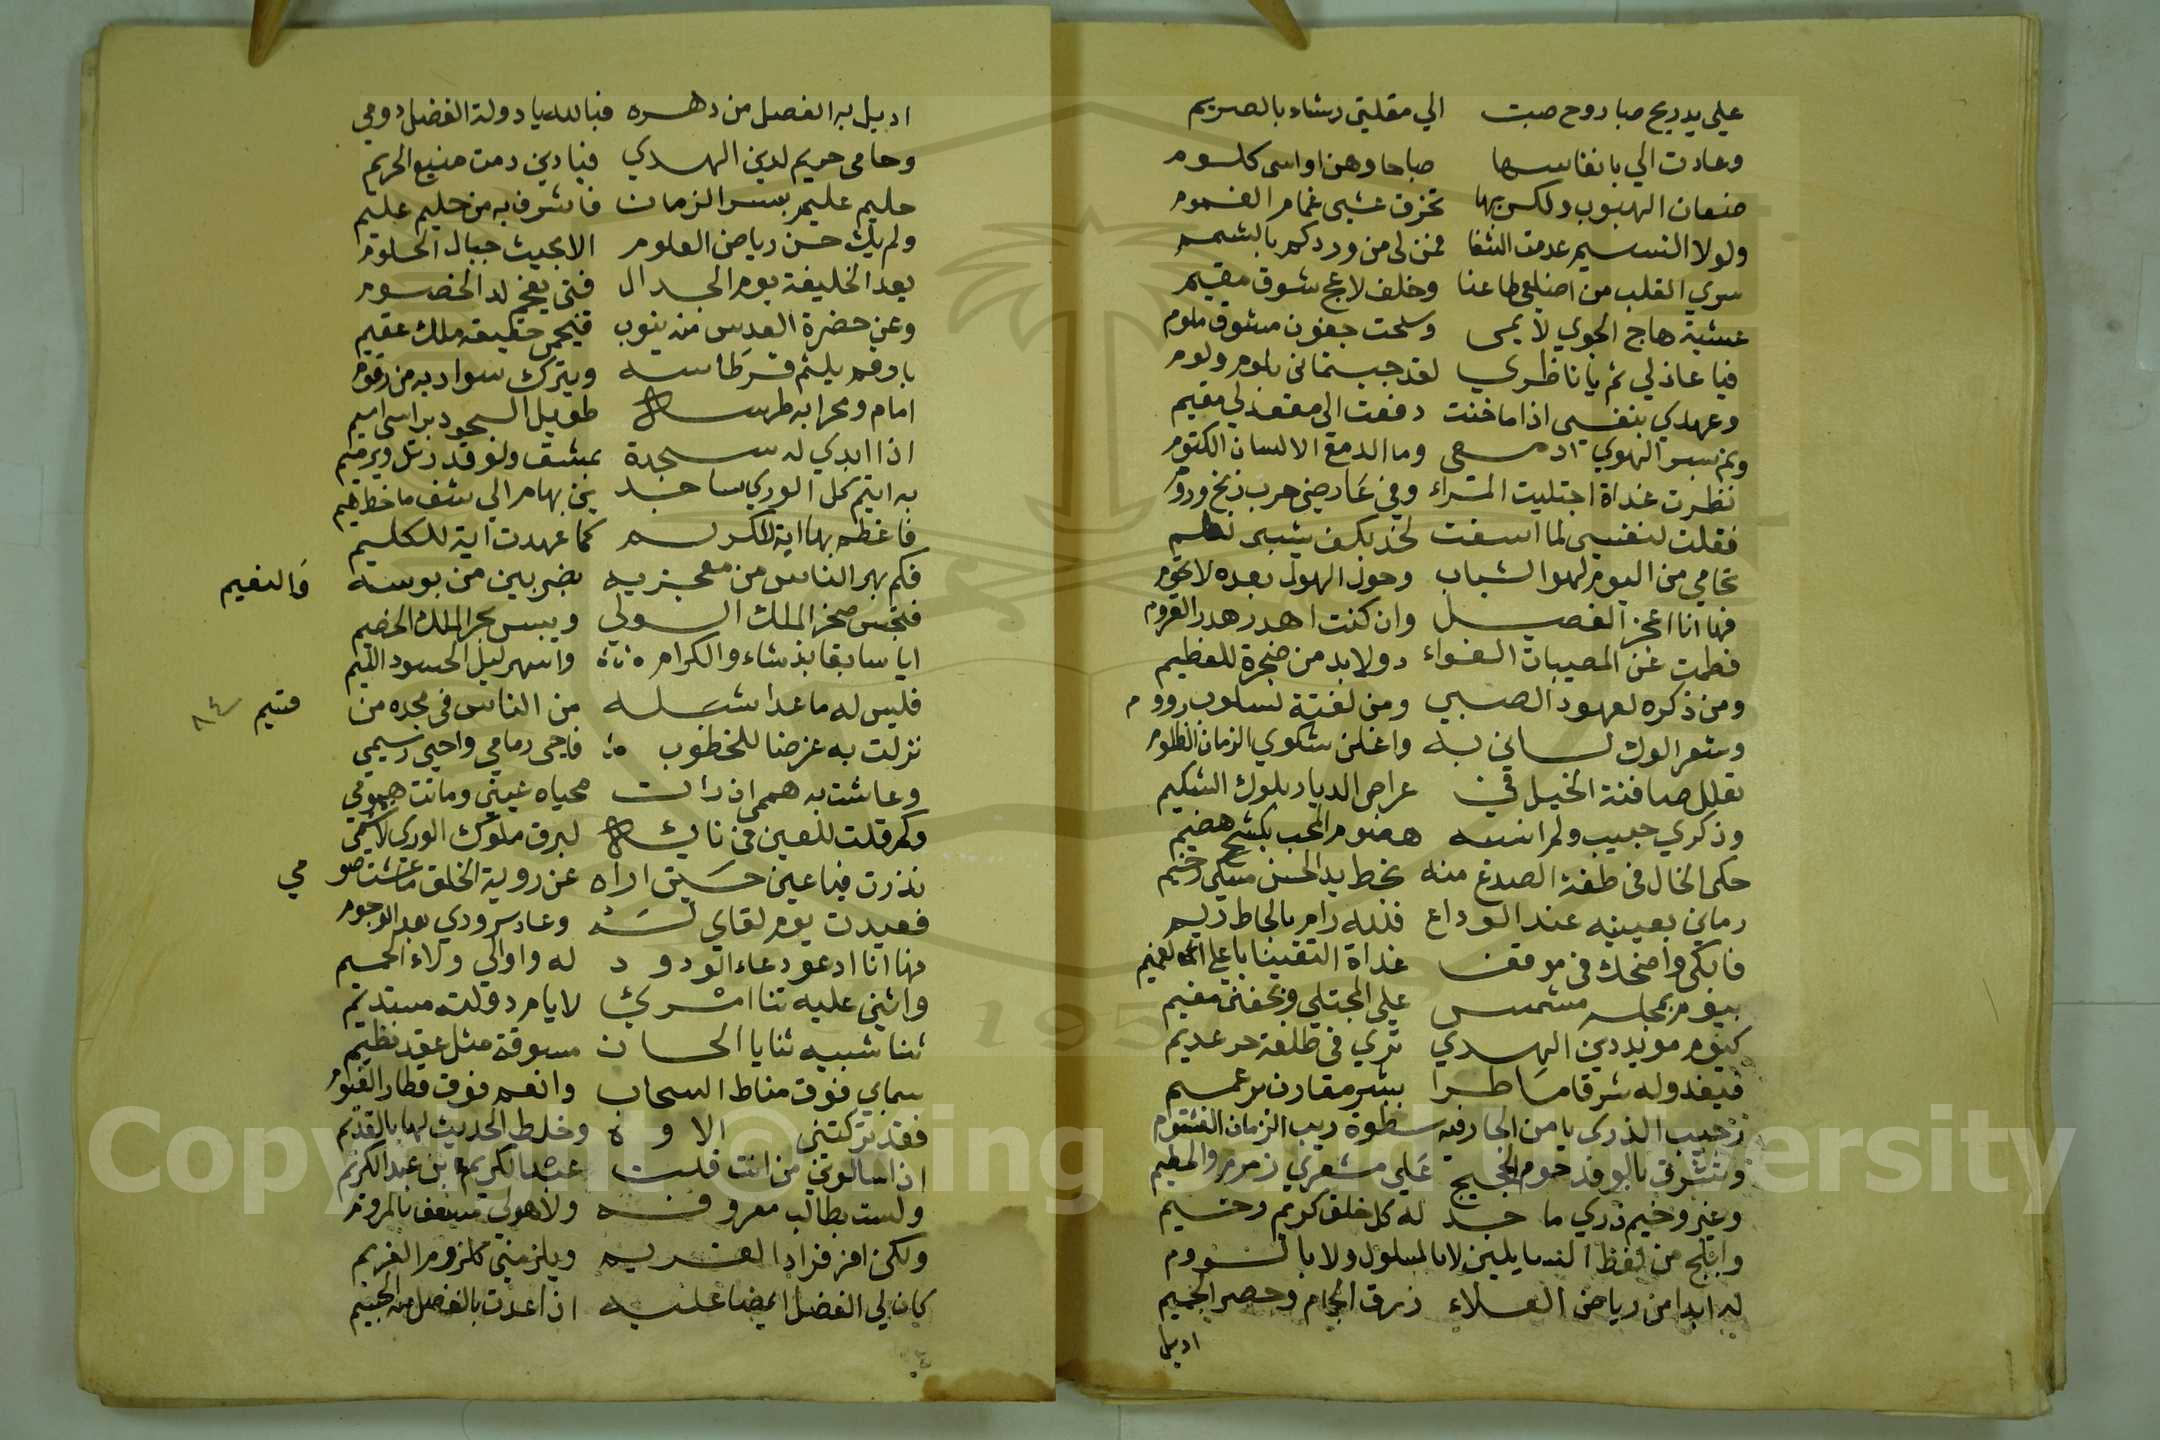 علي يد ريح صبا روح صبت الي مقلتي رشاء بالصريم
وعادت الي بانفاسها صباحا وهن اواسى كلوم
ضعاف الهبوب ولكن بها تخرق عشى غمام الغموم
ولولا النسيم عدمت الشفا فمن لى من وردكم بالشميم
سري القلب من اضلعي طاعنا وخلف لاعج شوق مقيم
عشية هاج الجوي لايمى وسلحت جفون مشوق ملوم
فيا عاذلي ثم يا ناظري لقد جيتمانى بلوم ولوم
وعهدي بنفسى اذا ما خنت دفعت الى مقعد لي مقيم
ونم بسر الهوي ادمعى وما الدمع الا لسان الكتوم
نظرت غداة اجتليت المراء وفي عارضى حرب زنج وروم
فقلت لنفسى لما اسفت لخد بكف شيبى لطيم
تحامي من اليوم لهو الشباب وحول الهول بعده لا تحوم
فها انا اعجز الفصيل وان كنت اهدر هدر القروم
فطمت عن المصيبات الفواء د ولا بد من ضجرة للفطيم
ومن ذكره لعهود الصبي ومن لفتة لسلوب رووم
وشعر الوك لسانى به واعلن شكوي الزمان الظلوم
تعلل صافنة الخيل في عراص الديار بلوك الشكيم
وذكري حبيب ولم انسه هضوم المحب بكشح هضيم
حكى الخال في طفة الصدغ منه بخط يد الحسن مسكي رخيم
رماني بعينيه عند الوداع فلله رام بالحاظ ريم
فابكى واضحك في موقف غداة التقينا
بيوم بمجلسه مشمس علي المجتلي وبجفنى مغيم
كيوم مويد دين الهدي تري في طلعة حر عديم
فيغدو له شرقا ماطرا ببشر مقارن
رحيب الذري يا من الجار فيه سطوة ريب الزمان الغشوم
وتشرق بالوفد حوم الحجيج علي مشعري زمزم والحطيم
وغير وخيم ذري ما جد له كل خلق كريم وخيم
وابلج من لفظ الندا يلين لا بالملول ولا بالنووم
له ابدا من رياض العلاء زرق الجمام وحصر الجميم
اديل
اديل به الفضل من دهره فبالله يا دولة الفضل دومي
وحامى حريم لدين الهدي فيا دين دمت منيع الحريم
حليم عليم بسر الزمان فاشرف به من حليم عليم
ولم يك حسن رياض العلوم الا بحيث جبال الحلوم
يعد الخليفة يوم الجدال فتى يفحم لد الخصوم
وعن حضرة القدس منه ينوب فيحمى حقيقة ملك عقيم
بارقم يلثم قرطاسه ويترك سوادبه من رقوم
امام ومحرابه طرسه طويل السجود براس اميم
اذا ابدي له سجدة بمشق ولو قدر تل ويرميم
به ايتم كل الوري ساجد
فاعظم بها اية للكريم كما عهدت اية للكليم
فكم بهر الناس من معجزيه بضربين من بوسه والنعيم
فبجس صخر الملك الولي ويبس بحر الملك الخضيم
ايا سابقا بذشاء والكرام واسهر ليل الحسود اللئيم
فليس له ما عدا شبله من الناس في مجده من قسيم
نزلت به عرضا للخطوب فاحى رمامي واحيى رسيمي
وعاشت به هممى ان رات محياه عينى وماتت همومي
وكم قلت للعين في نايه لبرق ملوك الوري لا تشيمى
نذرت فيا عين حين اراه عن روية الخلق ما عشت صومي
فعيدت يوم لقاي له وعاد سرودي بعد الوجوم
فها انا ادعو دعاء الودود له واوالي ولاء الحميم
واثني عليه ثنا امرئ لايام دولته مستديم
ثنا شبيه ثنايا الحسان مسوقة مثل عقد نظيم
سماي فوق مناط السحاب وانعم فوق قطار الغيوم
فقد تركتني الاوة وخلط الحديث لها بالقديم
اذا سالوني من انت قلت عبد الكريم بن عبد الكريم
ولست بطالب معروفه ولا هولي مسعف بالمروم
ولكن افر فراد الغريم ويلزمني كلزوم الغريم
كان لي الفضل ايضا عليه اذا عدت بالفضل منه الجسيم
٨٤
Copyright © King Saud University
195